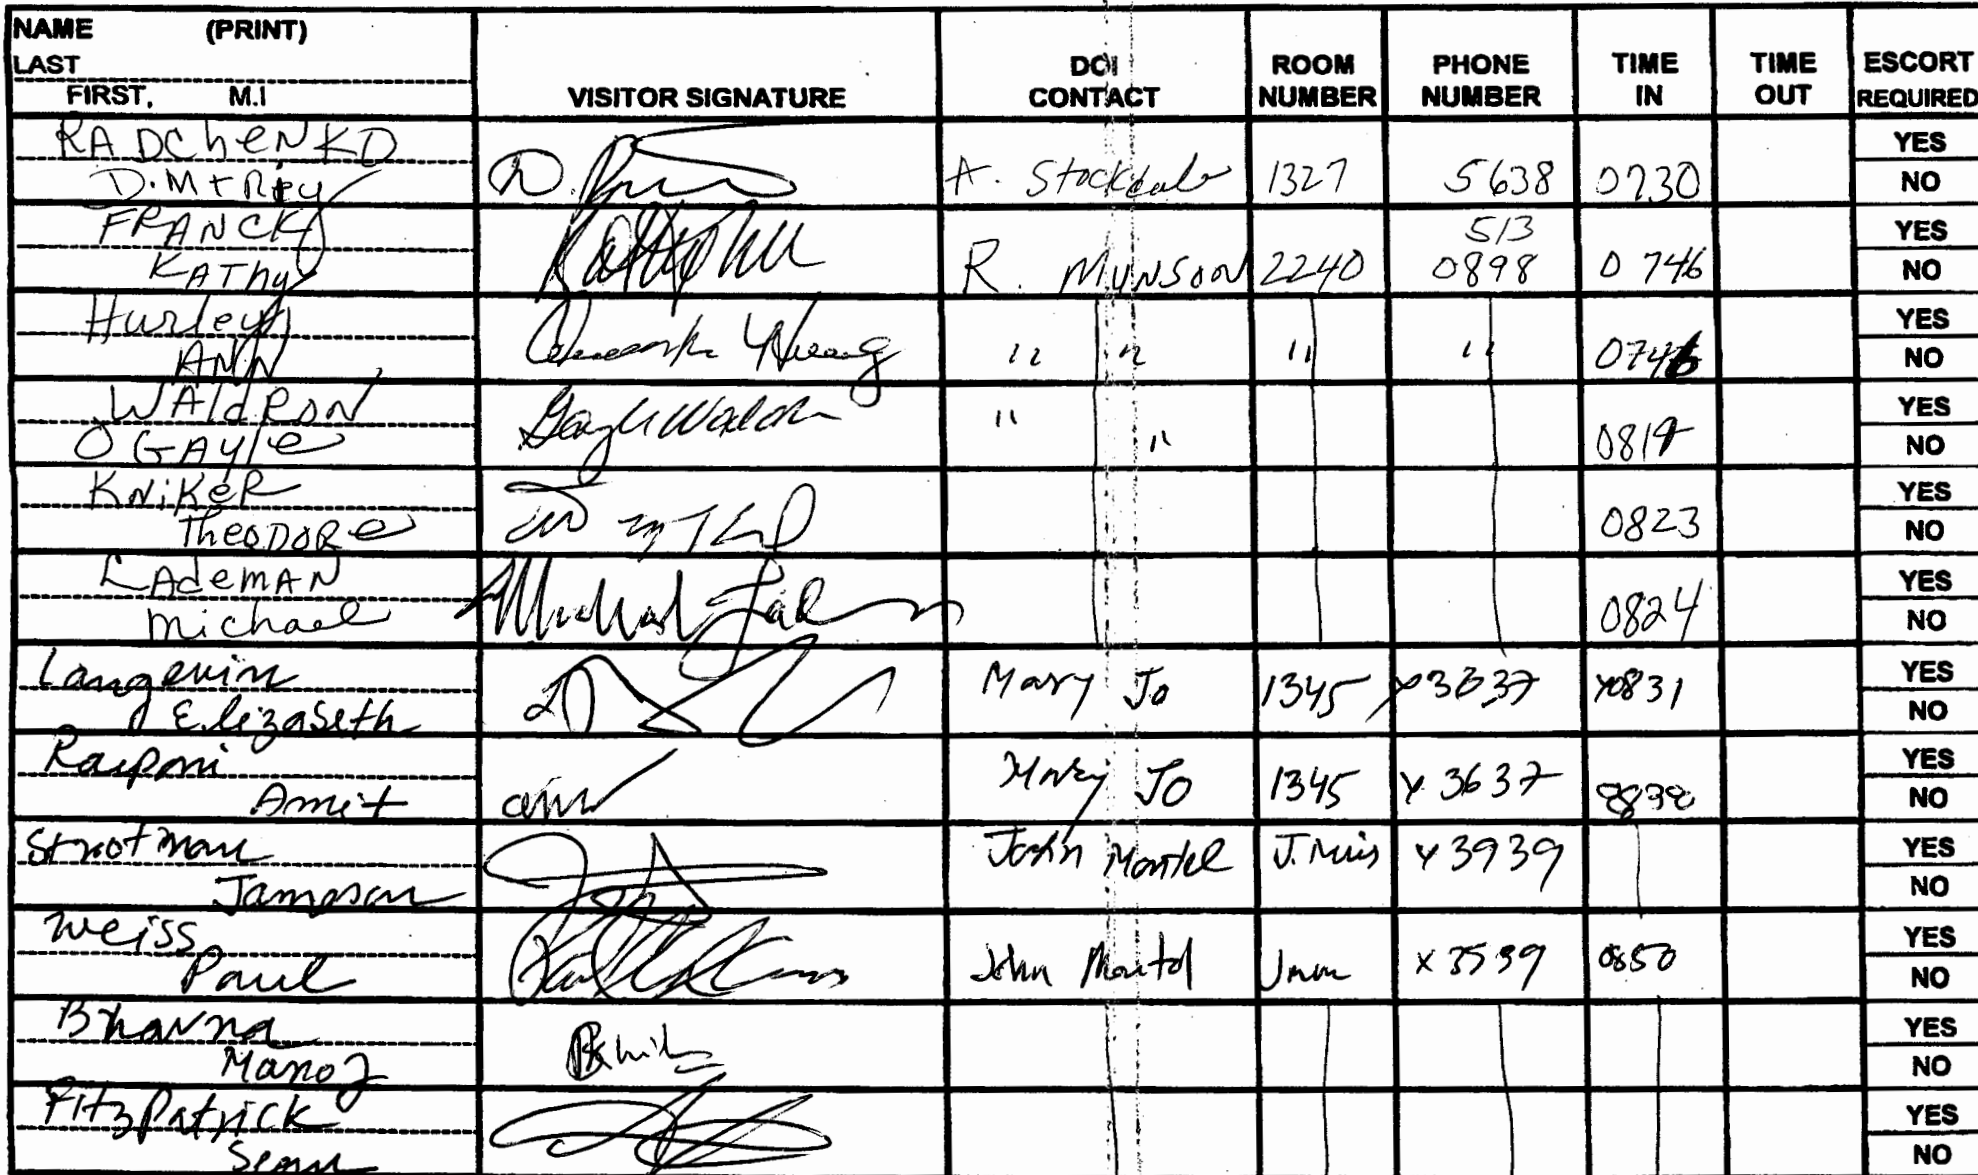 NAME (PRINT)
LAST
FIRST, M.I
VISITOR SIGNATURE
DOI
CONTACT
ROOM
NUMBER
PHONE
NUMBER
TIME
IN
TIME
OUT
ESCORT
REQUIRED
RADCheNKO
D.MtRiy
A. Stockdale 1327 5638 0730
YES
NO
FRANCK
KAThy
R. MUNSON 2240 513
0898 0746
YES
NO
Hurley
ANN
" " " " 0746
YES
NO
WAldRON
O GAyle
Gayle Waldron
" " 0819
YES
NO
KNiKeR
TheODORe
0823
YES
NO
LAdemAN
michael
Michael
0824
YES
NO
Langevin
Elizabeth
Mary Jo 1345 x3637 0831
YES
NO
Amit
Mary Jo 1345 x3637
YES
NO
Strotman
Jampson
John x3939
YES
NO
Weiss
Paul
John x3939 0850
YES
NO
Bhavna
Manoj
YES
NO
FitzPatrick
Sean
YES
NO